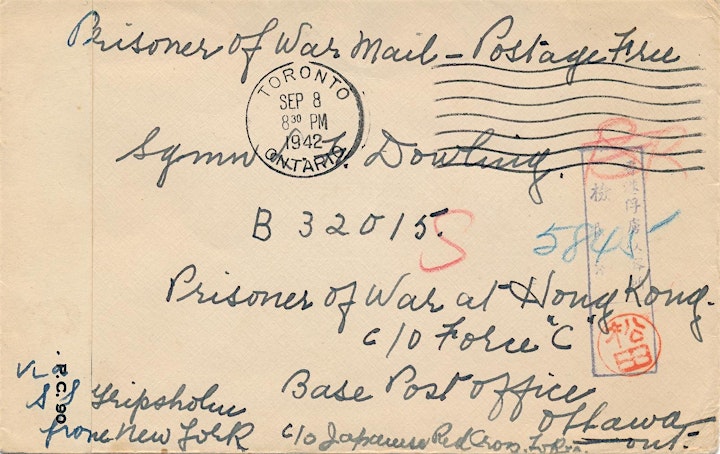 Prisoner of War Mail - Postage Free
TORONTO
SEP 8
8 30 PM
1942
ONTARIO
Sgmn Dowling.
B 32015.
S
5845
Prisoner of War at Hong Kong.
c/o Force "C"
Base Post Office
Ottawa
Ont.
c/o Japanese Red Cross, Tokyo.
via
SS Gripsholm
from New York
P.C. 90
俘虜
檢
松田